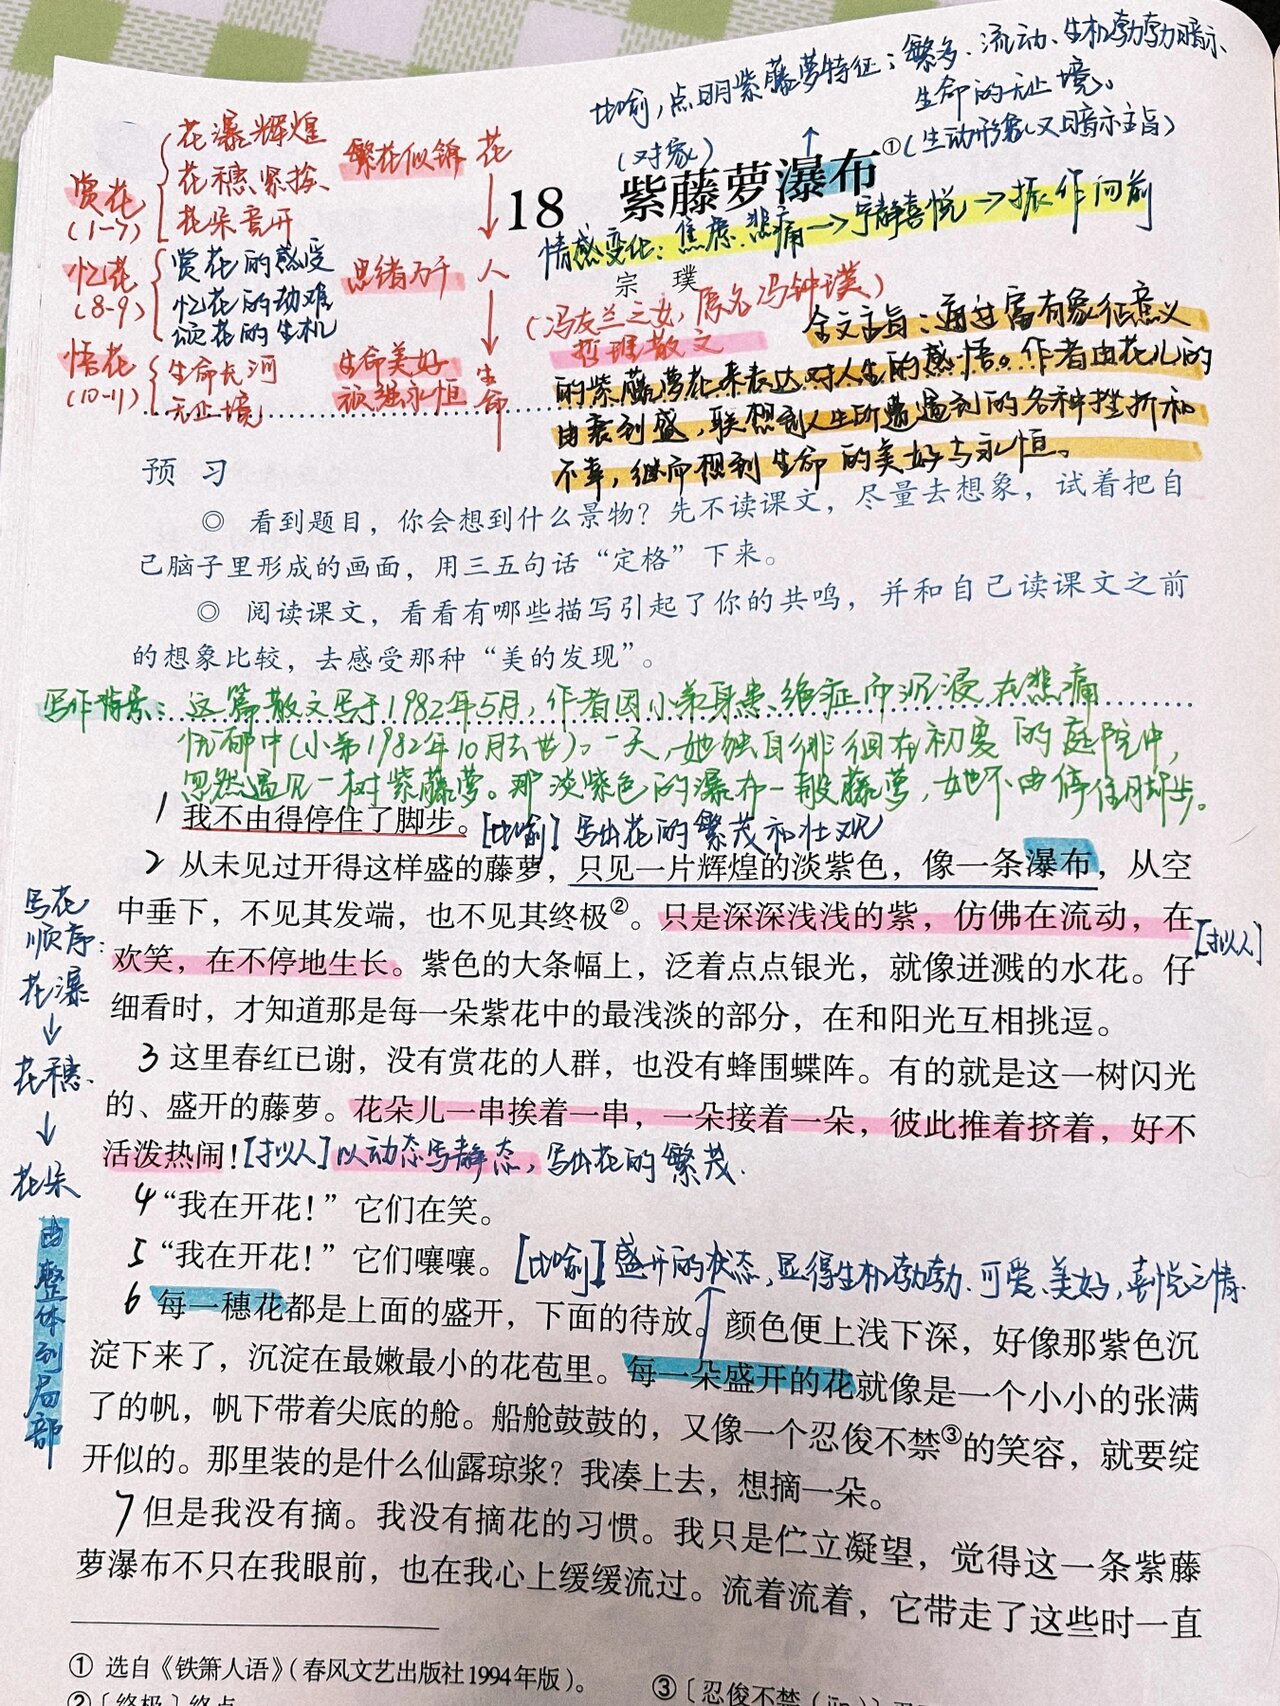 比喻,点明紫藤萝特征:繁多、流动、生机勃勃,暗示
生命的无止境。
(生动形象,又暗示主旨)
(对象)
18 紫藤萝瀑布①
情感变化:焦虑、悲痛→宁静喜悦→振作向前
宗 璞
(冯友兰之女,原名冯钟璞)
哲理散文
赏花
(1-7)
花瀑辉煌
花穗紧挨、
花朵
繁花似锦
花
忆花
(8-9)
赏花的感受
忆花的劫难
颂花的生机
思绪万千
人
悟花
(10-11)
生命长河
无止境
生命美好
顽强永恒
生命
全文主旨:通过富有象征意义
的紫藤萝花来表达对人生的感悟。作者由花儿的
由衰到盛,联想到人生所遭遇到的各种挫折和
不幸,继而想到生命的美好与永恒。
预 习
◎ 看到题目,你会想到什么景物?先不读课文,尽量去想象,试着把自
己脑子里形成的画面,用三五句话“定格”下来。
◎ 阅读课文,看看有哪些描写引起了你的共鸣,并和自己读课文之前
的想象比较,去感受那种“美的发现”。
写作背景:这篇散文写于1982年5月,作者因小弟身患绝症而沉浸在悲痛
忧郁中(小弟1982年10月去世)。一天,她独自徘徊在初夏的庭院中,
忽然遇见一树紫藤萝。那淡紫色的瀑布一般藤萝,她不由停住脚步。
1 我不由得停住了脚步。[比喻]写出花的繁茂和壮观
2 从未见过开得这样盛的藤萝,只见一片辉煌的淡紫色,像一条瀑布,从空
中垂下,不见其发端,也不见其终极②。只是深深浅浅的紫,仿佛在流动,在
[拟人]
欢笑,在不停地生长。紫色的大条幅上,泛着点点银光,就像迸溅的水花。仔
细看时,才知道那是每一朵紫花中的最浅淡的部分,在和阳光互相挑逗。
3 这里春红已谢,没有赏花的人群,也没有蜂围蝶阵。有的就是这一树闪光
的、盛开的藤萝。花朵儿一串挨着一串,一朵接着一朵,彼此推着挤着,好不
活泼热闹![拟人]以动态写静态,写出花的繁茂.
4 “我在开花!”它们在笑。
5 “我在开花!”它们嚷嚷。[比喻]盛开的状态,显得生机勃勃、可爱、美好,喜悦之情.
6 每一穗花都是上面的盛开,下面的待放。颜色便上浅下深,好像那紫色沉
淀下来了,沉淀在最嫩最小的花苞里。每一朵盛开的花就像是一个小小的张满
了的帆,帆下带着尖底的舱。船舱鼓鼓的,又像一个忍俊不禁③的笑容,就要绽
开似的。那里装的是什么仙露琼浆?我凑上去,想摘一朵。
7 但是我没有摘。我没有摘花的习惯。我只是伫立凝望,觉得这一条紫藤
萝瀑布不只在我眼前,也在我心上缓缓流过。流着流着,它带走了这些时一直
写花
顺序:
花瀑
↓
花穗
↓
花朵
由整体到局部
① 选自《铁箫人语》(春风文艺出版社1994年版)。
②〔终极〕终点
③〔忍俊不禁(jīn)〕